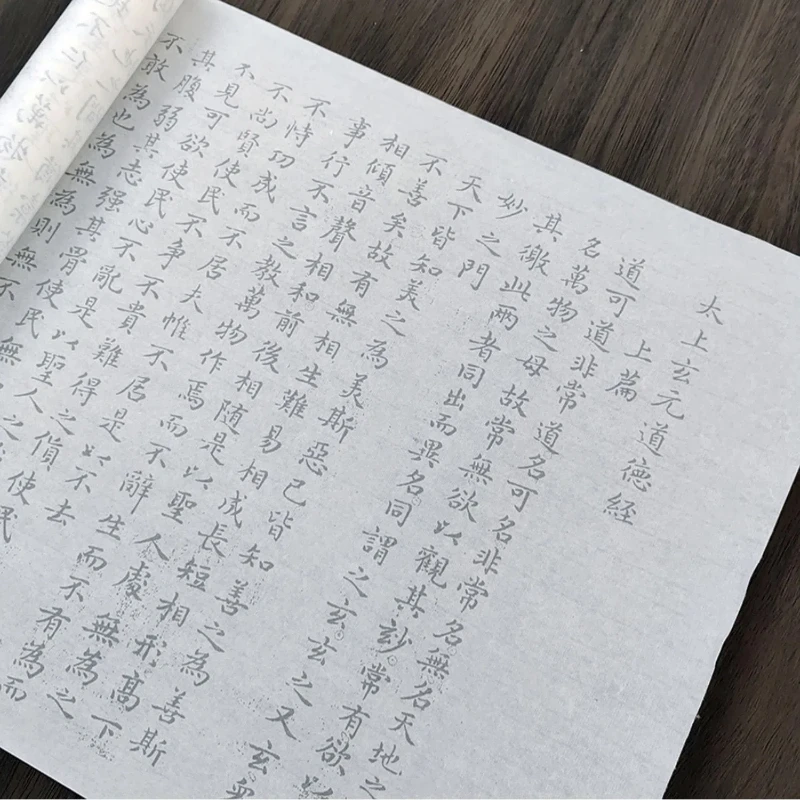 太上玄元道德經
上篇
道可道非常道名可名非常名無名天地之
名萬物之母故常無欲以觀其玅常有欲以
其徼此兩者同出而異名同謂之玄玄之又玄衆
妙之門
天下皆知美之為美斯惡已皆知善之為善斯
不善矣故有無相生難易相成長短相形高下
相傾音聲相和前後相随是以聖人處無為之
事行不言之教萬物作焉而不辭生而不有為而
不恃功成而不居夫惟不居是以不去
不尚賢使民不争不貴難得之貨使民
不見可欲使民心不亂是以聖人之
其腹弱其志强其骨使民無
不敢為也為無為則無不